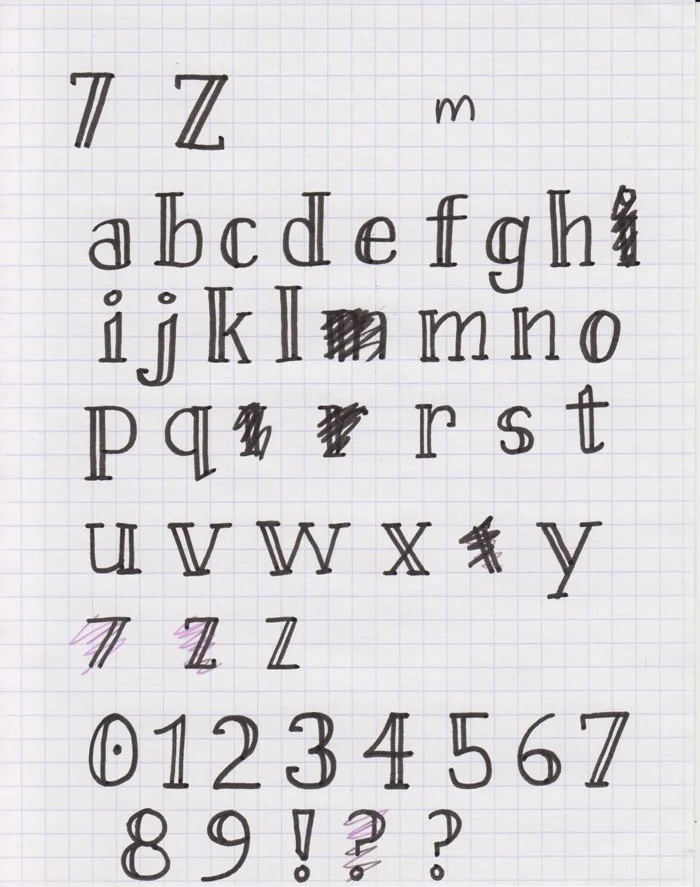 7 Z m
a b c d e f g h
i j k l m n o
p q r s t
u v w x y
7 z z
0 1 2 3 4 5 6 7
8 9 ! ? ?